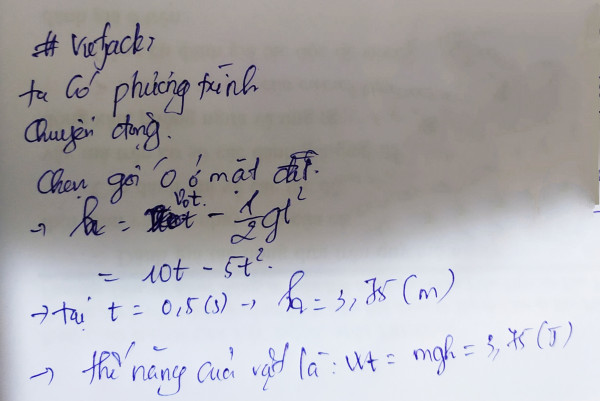 # Vietjack,
ta có phương trình
chuyển động.
Chọn gốc O ở mặt đất.
→ h = v₀t - 1/2 gt²
= 10t - 5t².
→ tại t = 0,5 (s) → h = 3,75 (m)
→ thế năng của vật là: Wt = mgh = 3,75 (J)